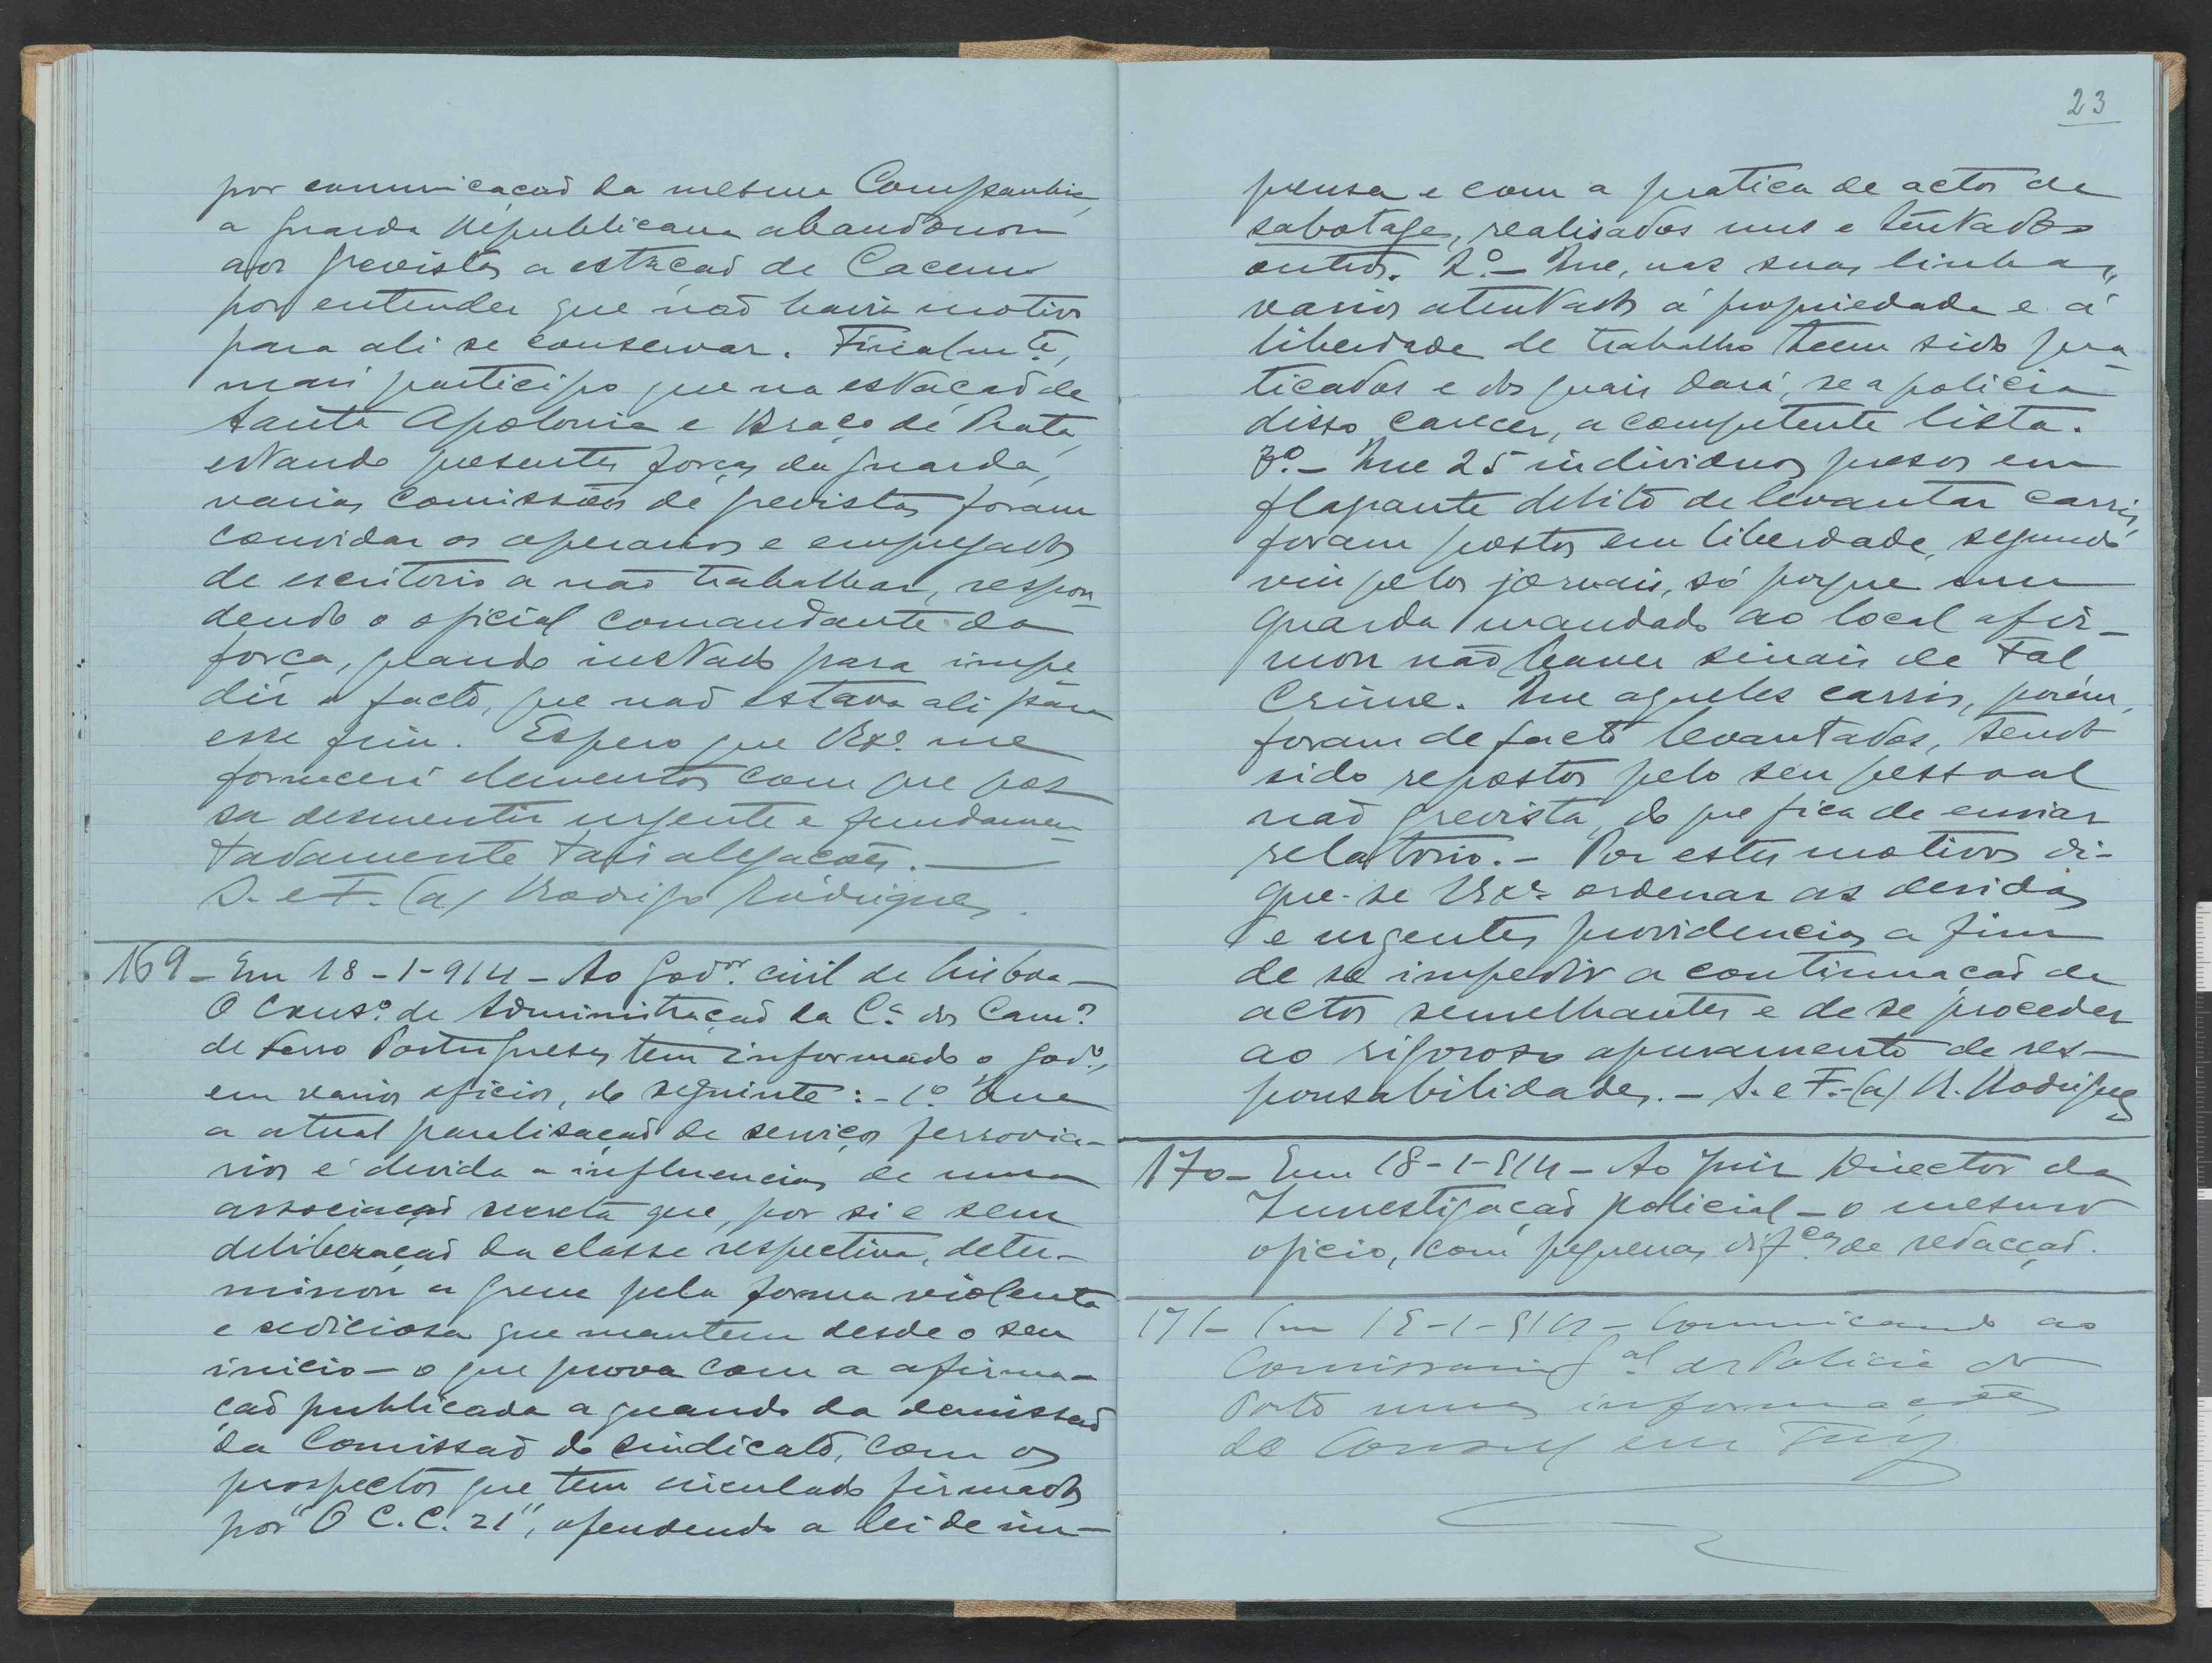 por comunicação da mesma Companhia,
a Guarda Republicana abandonou
aos grevistas a estação de Cacem
por entender que não havia motivo
para ali se conservar. Finalm.te,
mais participo que na estação de
Santa Apolonia e Braço de Prata,
estando presentes forças da guarda,
varias comissões de grevistas foram
convidar os operarios e empregados
de escritorio a não trabalhar, respon-
dendo o oficial comandante da
força, quando instado para impe-
dir o facto, que não estava ali para
esse fim. Espero que V.Ex.ª me
fornecerá elementos com que pos-
sa desmentir urgente e fundamen-
tadamente tais alegações. —
S. e F. (a) Rodrigo Rodrigues.
169 - Em 18-1-914 - Ao Gov.or civil de Lisboa -
O Cons.º de Administração da C.ª dos Cam.os
de Ferro Portugueses tem informado o gov.º,
em varios oficios, do seguinte: - 1.º Que
a atual paralisação de serviços ferrovia-
rios é devida a influencias de uma
associação secreta que, por si e sem
deliberação da classe respectiva, deter-
minou a greve pela forma violenta
e sediciosa que mantem desde o seu
inicio - o que prova com a afirma-
ção publicada a quando da demissão
da Comissão do sindicato, com os
prospectos que tem circulado firmados
por "O C.C. 21", ofendendo a lei de im-
23
prensa e com a pratica de actos de
sabotage, realisados uns e tentados
outros. 2.º - Que, nas suas linhas,
varios atentados á propriedade e á
liberdade de trabalho teem sido pra-
ticados e dos quais dará, se a policia
disso carecer, a competente lista.
3.º - Que 25 individuos presos em
flagrante delito de levantar carris,
foram postos em liberdade, segundo
viu pelos jornais, só porque um
guarda mandado ao local afir-
mou não haver sinais de tal
crime. Que aqueles carris, porém,
foram de facto levantados, tendo
sido repostos pelo seu pessoal
não grevista, do que fica de enviar
relatorio. - Por estes motivos di-
gne-se V.Ex.ª ordenar as devidas
e urgentes providencias a fim
de se impedir a continuação de
actos semelhantes e de se proceder
ao rigoroso apuramento de res-
ponsabilidades. - S. e F. - (a) R. Rodrigues
170 - Em 18-1-914 - Ao Juiz Director da
Investigação policial - o mesmo
oficio, com pequenas dif.cas de redacção.
171 - Em 18-1-914 - Comunicando ao
Comissario G.al da Policia do
Porto umas informações
do Consul em Tuy